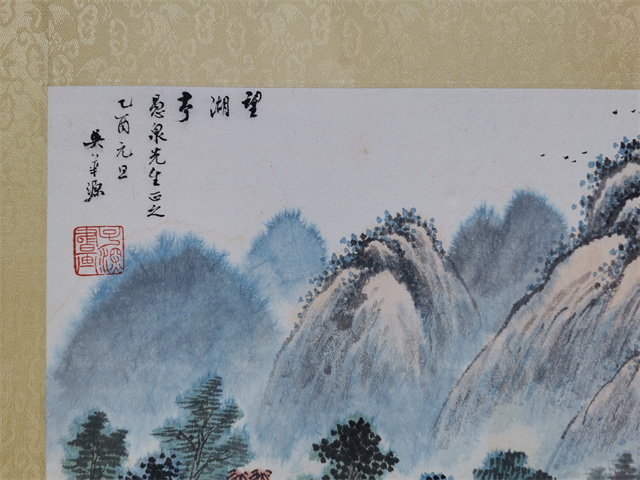 望湖亭
愚泉先生正之
乙酉元旦
吳華源
子深書画